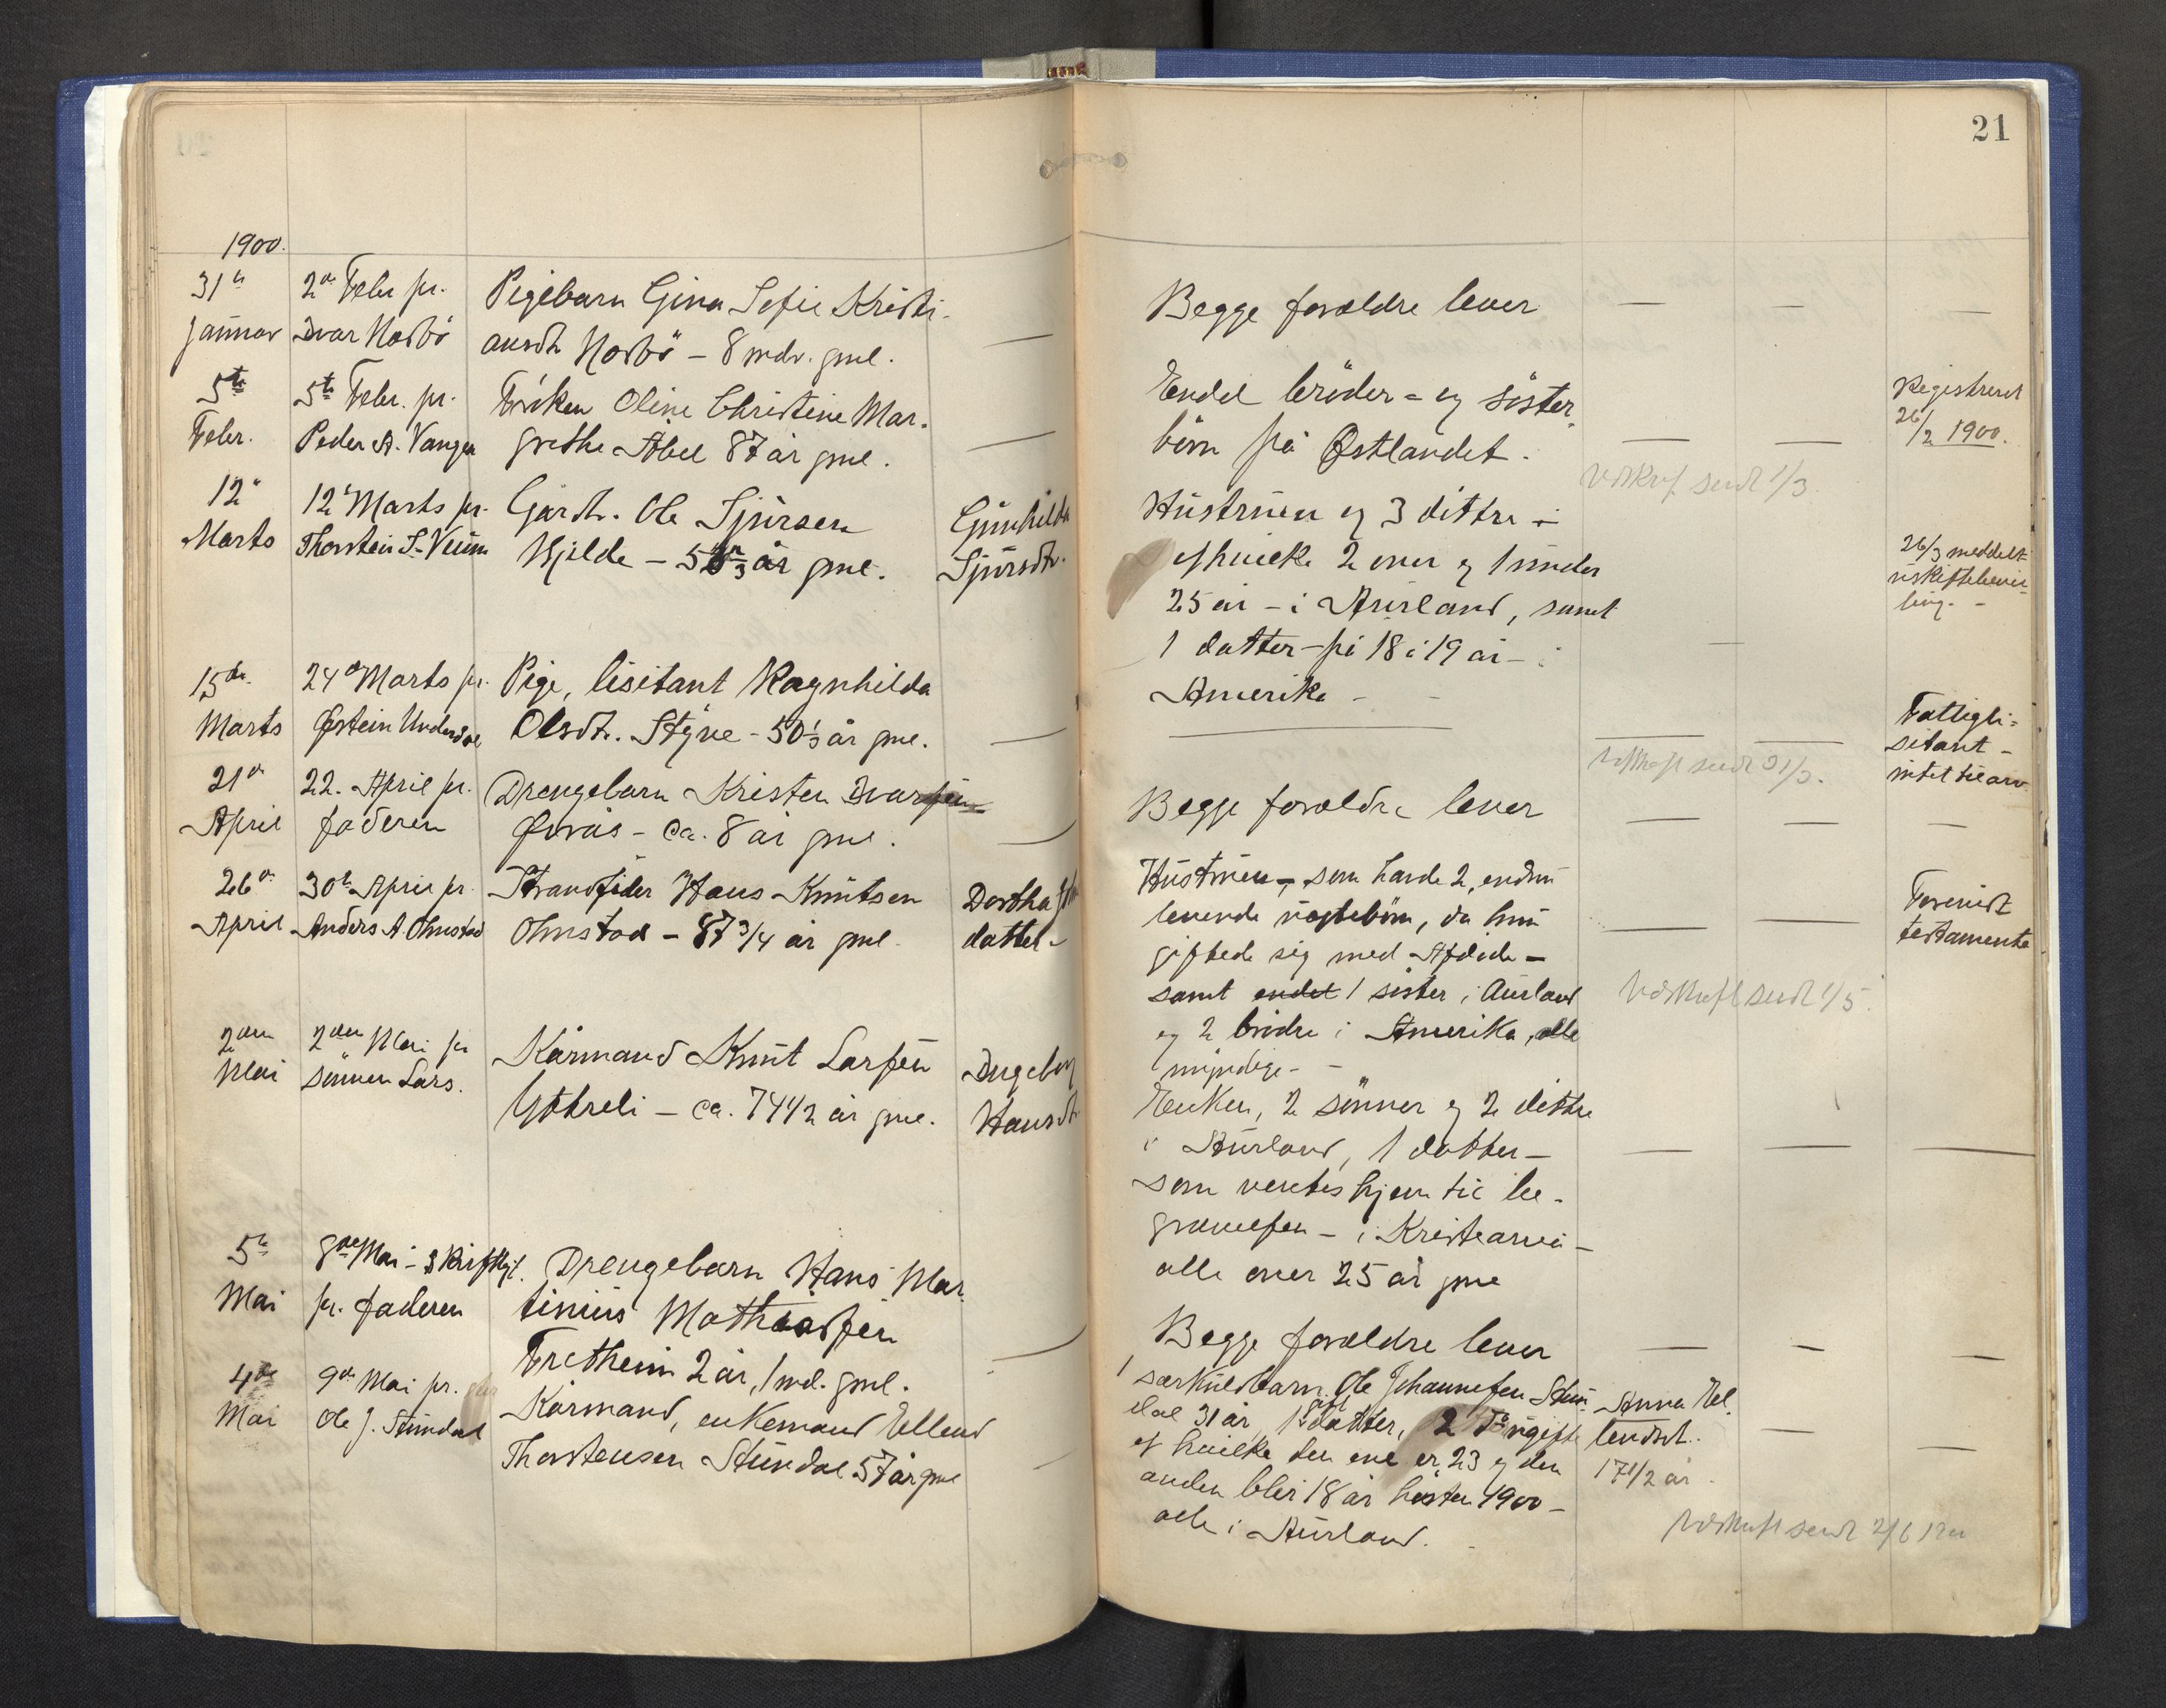 21
1900.
31te
Januar
2den Febr pr.
Ivar Nosbö
Pigebarn Gina Sofie Kristi-
ansdtr Nosbö – 8 mdr. gml.
—
Begge forældre lever
— — —
5te
Febr.
5te Febr. pr.
Peder A. Vangen
Fröken Oline Christine Mar-
grethe Abel 87 år gml.
—
Endel bröder- og söster-
börn på Østlandet.
— —
Registreret
26/2 1900.
Udskrift sendt 1/3.
12te
Marts
12te Marts pr.
Thorstein S. Veum
Gårdbr. Ole Sjursen
Hjelde – år gml.
Gunhilda
Sjursdtr.
Hustruen og 3 döttre –
af hvilke 2 over og 1 under
25 år – i Aurland, samt
1 datter – på 18 à 19 år – i
Amerika –
—
26/3 meddelt
uskiftebevil-
ling. –
15de
Marts
24de Marts pr.
Østein Underdal
Pige, lisitant Ragnhilda
Olsdtr. Styve – 50 1/3 år gml.
—
—
— —
Fattigli-
sitant –
intet til arv
Udskrift sendt 31/3.
21de
April
22. April pr.
faderen
Drengebarn Kristen Ivarsen
Øvrås – ca. 8 år gml.
—
Begge forældre lever
— — —
26de
April
30te April pr.
Anders A. Ohnstad
Strandsider Hans Knutsen
Ohnstad – 87 3/4 år gml.
Dortha
datter
Hustruen – som havde 2, endnu
levende uægtebörn, da hun
giftede sig med Afdöde –
samt endel 1 söster i Aurland
og 2 brödre i Amerika, alle
myndige –
— —
Forenet
testamente
Udskrift sendt 1/5.
2den
Mai
2den Mai pr
sönnen Lars.
Kårmand Knut Larsen
Ytreli – ca. 74 1/2 år gml.
Ingeborg
Hansdtr
Enken, 2 sönner og 2 döttre
i Aurland, 1 datter –
som ventes hjem til be-
gravelsen – i Kristiania –
alle over 25 år gml
— — —
5te
Mai
8de Mai – skriftligt.
pr. faderen
Drengebarn Hans Mar-
tinius Mathiassen
Fretheim 2 år, 1 md. gml.
—
Begge forældre lever
— — —
4de
Mai
9de Mai pr.
Ole J. Stundal
Kårmand, enkemand Ellend
Thorstensen Stundal 57 år gml
—
1 særkuldbarn Ole Johannesen Stun-
dal 31 år, 1 gift datter, 2 Do ugifte
af hvilke den ene er 23 og den
anden blir 18 år hösten 1900 –
alle i Aurland.
Anna El-
lendsdt.
17 1/2 år.
— —
Udskrift sendt 2/6 1900